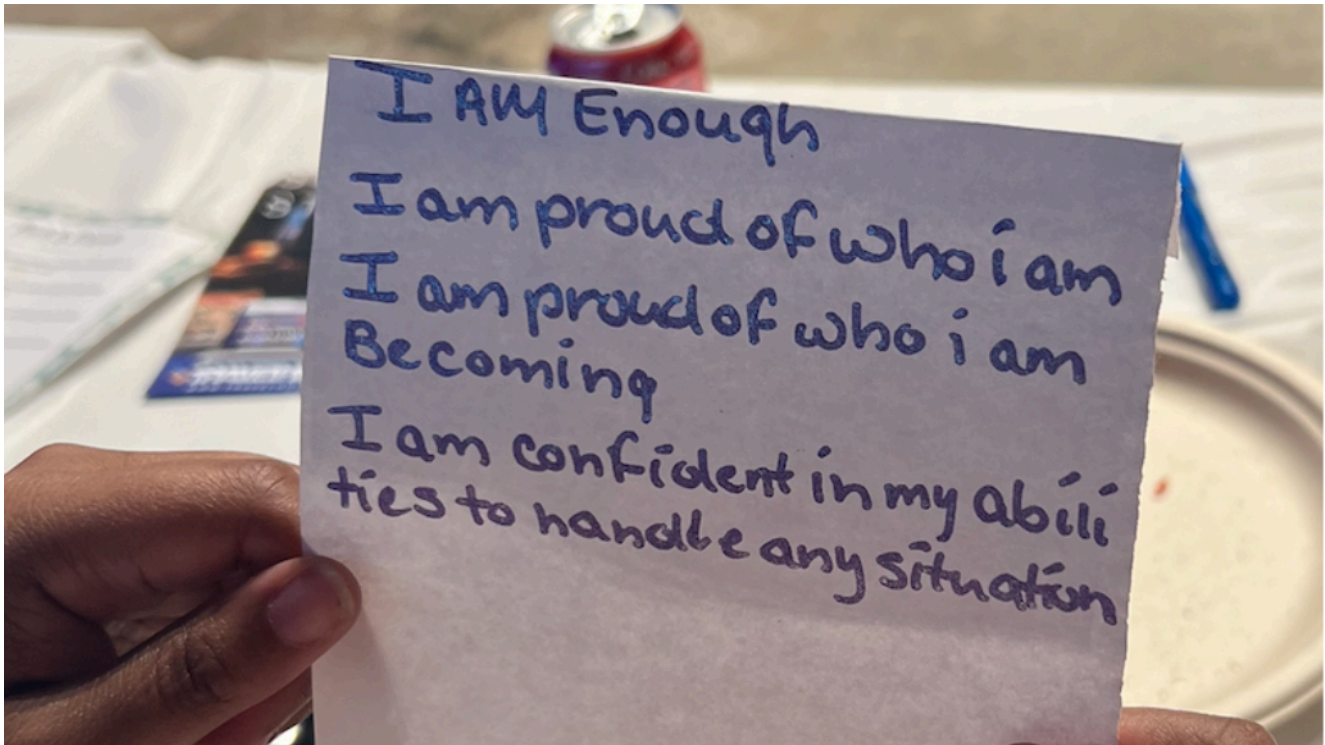 I AM Enough
I am proud of who i am
I am proud of who i am
Becoming
I am confident in my abili
ties to handle any situation